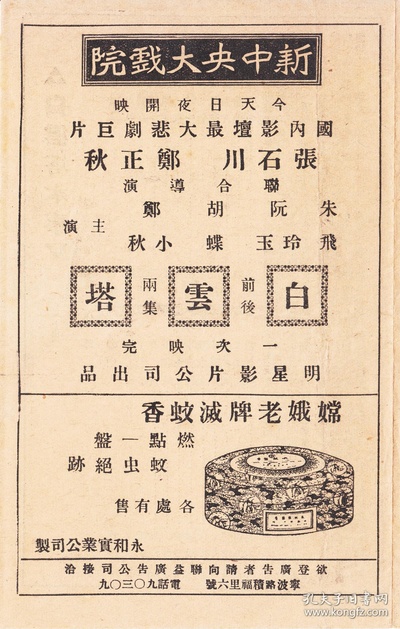 新中央大戲院
今天日夜開映
國內影壇最大悲劇巨片
張石川 鄭正秋
聯合導演
朱飛 阮玲玉 胡蝶 鄭小秋 主演
白 前後 雲 兩集 塔
一次映完
明星影片公司出品
嫦娥老牌滅蚊香
燃點一盤
蚊虫絕跡
各處有售
永和實業公司製
欲登廣告者請向聯益廣告公司接洽
寧波路積福里六號 電話九〇三〇九
孔夫子旧书网